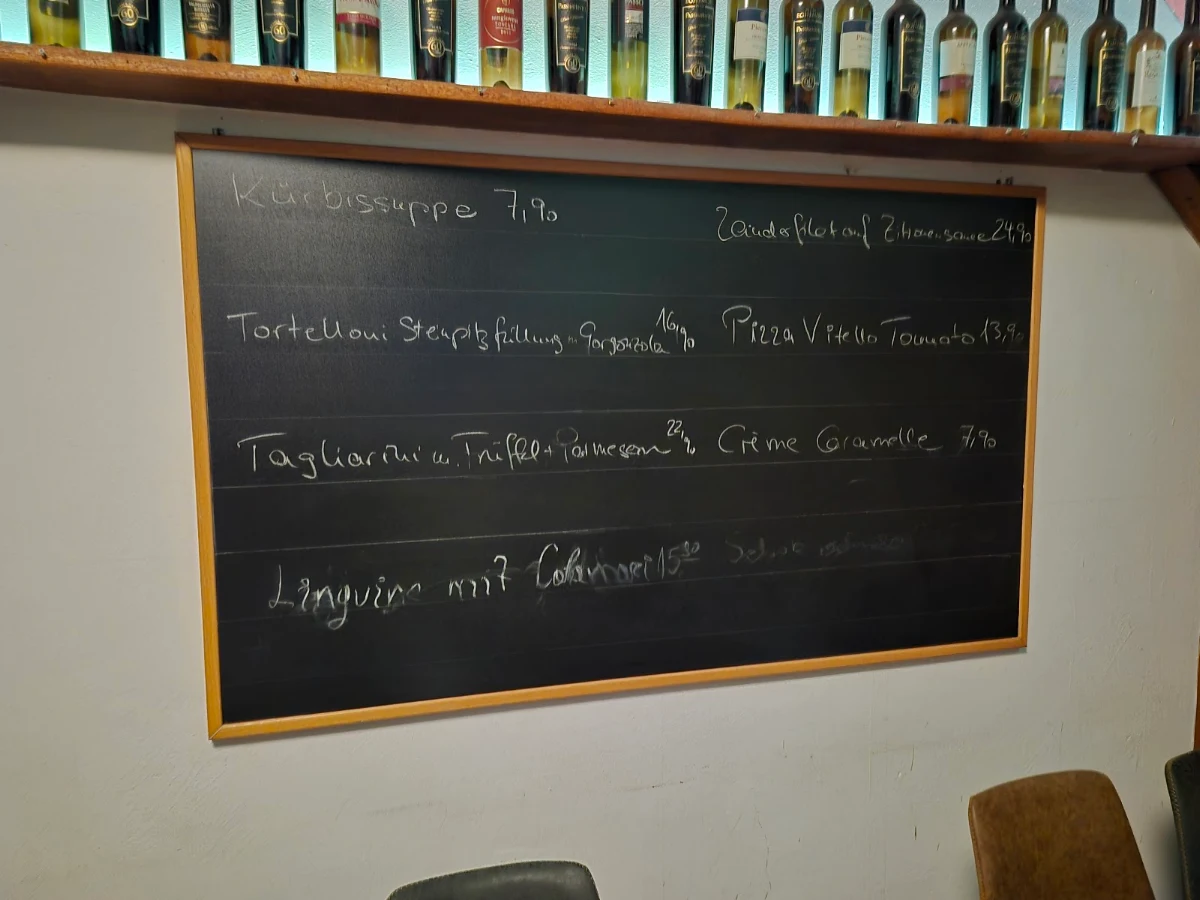 Kürbissuppe 7,90
Tortelloni Steinpilzfüllung Gorgonzola 16,90
Tagliarini m. Trüffel + Parmesan 22,90
Linguine mit Calamari 15,90
Zanderfilet auf Zitronensauce 24,90
Pizza Vitello Tonnato 13,90
Crème Caramelle 7,90